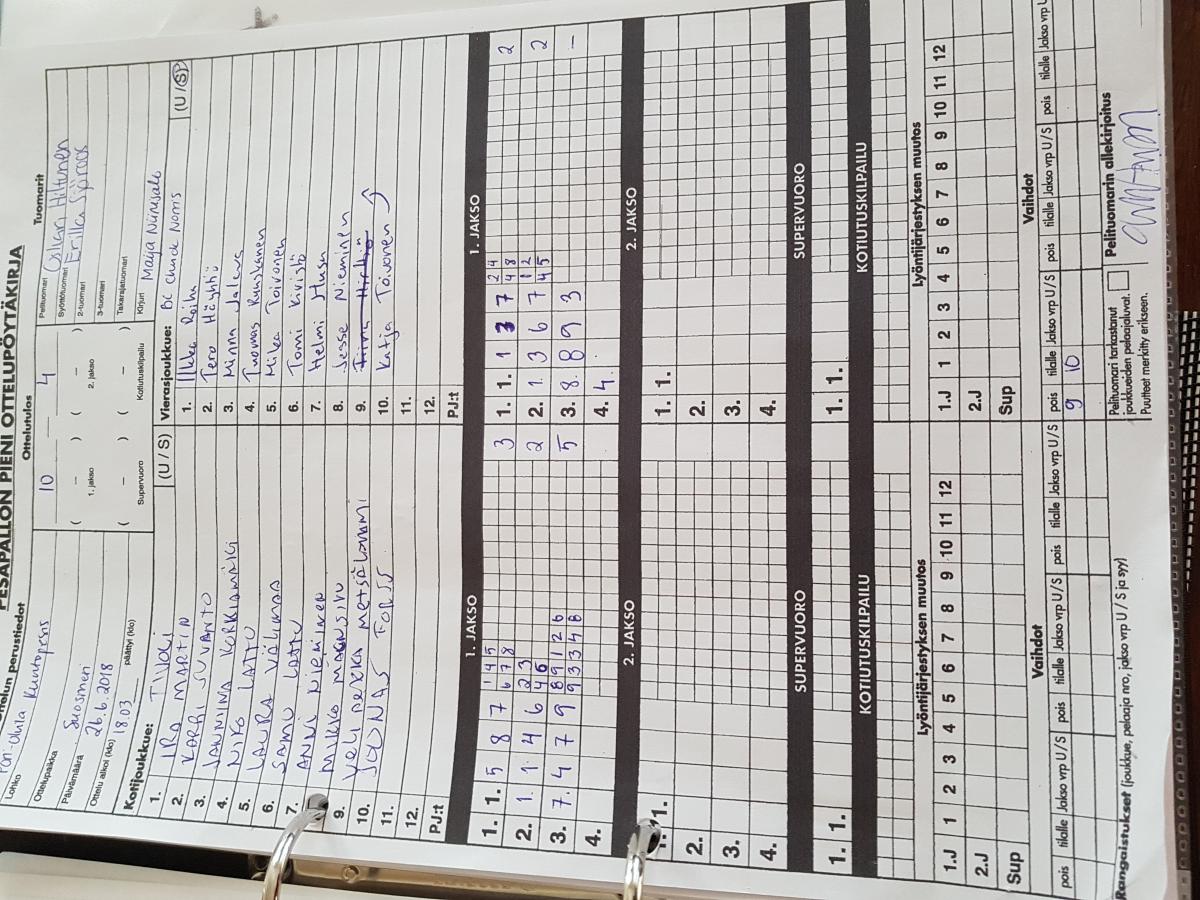 PESÄPALLON PIENI OTTELUPÖYTÄKIRJA
Ottelun perustiedot
Ottelutulos
Tuomarit
Lohko
Pori-Ulvila Kuntopesis
10 – 4
Pelituomari Oskari Hiltunen
Ottelupaikka
( – ) ( – )
Syöttötuomari Erilka Sjöroos
Päivämäärä Suosmeri
1. jakso 2. jakso
2-tuomari
26.6.2018
3-tuomari
Ottelu alkoi (klo) 18.03 päättyi (klo)
( – ) ( – )
Takarajatuomari
Supervuoro Kotiutuskilpailu
Kirjuri Maija Niinisalo
Kotijoukkue: TIIVOLI (U / S)
1. IRA MARTIN
2. KARRI SUVANTO
3. JANNIINA KORKIAMÄKI
4. NIKO LATTU
5. LAURA VÄLIMAA
6. SAMU LATTU
7. ANNI NIEMINEN
8. MIKKO MAGNSIVU
9. Veli pekka METSÄLAMMI
10. JOONAS FORSS
11.
12.
PJ:t
Vierasjoukkue: BC Chuck Norris (U / S)
1. Ilkka Roiha
2. Tero Höyhtiö
3. Minna Jalava
4. Tuomas Ruuskanen
5. Mika Toivonen
6. Tomi Kivistö
7. Helmi Husu
8. Jesse Nieminen
9.
10. Katja Toivonen
11.
12.
PJ:t
1. JAKSO
1. 1. 5 8 7 1 4 5 3
6 7 8
2. 1. 1. 4 6 2 3 2
4 6
3. 7. 4 7 9 8 9 1 2 6 5
9 3 3 4 8
4.
1. JAKSO
1. 1. 1 3 7 2 4 2
4 8
2. 1. 3 6 7 1 2 2
4 5
3. 8. 8 9 3 –
4. 4.
2. JAKSO
1. 1.
2.
3.
4.
2. JAKSO
1. 1.
2.
3.
4.
SUPERVUORO
1. 1.
SUPERVUORO
1. 1.
KOTIUTUSKILPAILU
KOTIUTUSKILPAILU
Lyöntijärjestyksen muutos
1.J 1 2 3 4 5 6 7 8 9 10 11 12
2.J
Sup
Lyöntijärjestyksen muutos
1.J 1 2 3 4 5 6 7 8 9 10 11 12
2.J
Sup
Vaihdot
pois tilalle Jakso vrp U / S pois tilalle Jakso vrp U / S pois tilalle Jakso vrp U / S
Vaihdot
pois tilalle Jakso vrp U / S pois tilalle Jakso vrp U / S pois tilalle Jakso vrp U
9 10
Rangaistukset (joukkue, pelaaja nro, jakso vrp U / S ja syy)
Pelituomari tarkastanut
joukkueiden pelaajaluvat.
Puutteet merkitty erikseen.
Pelituomarin allekirjoitus